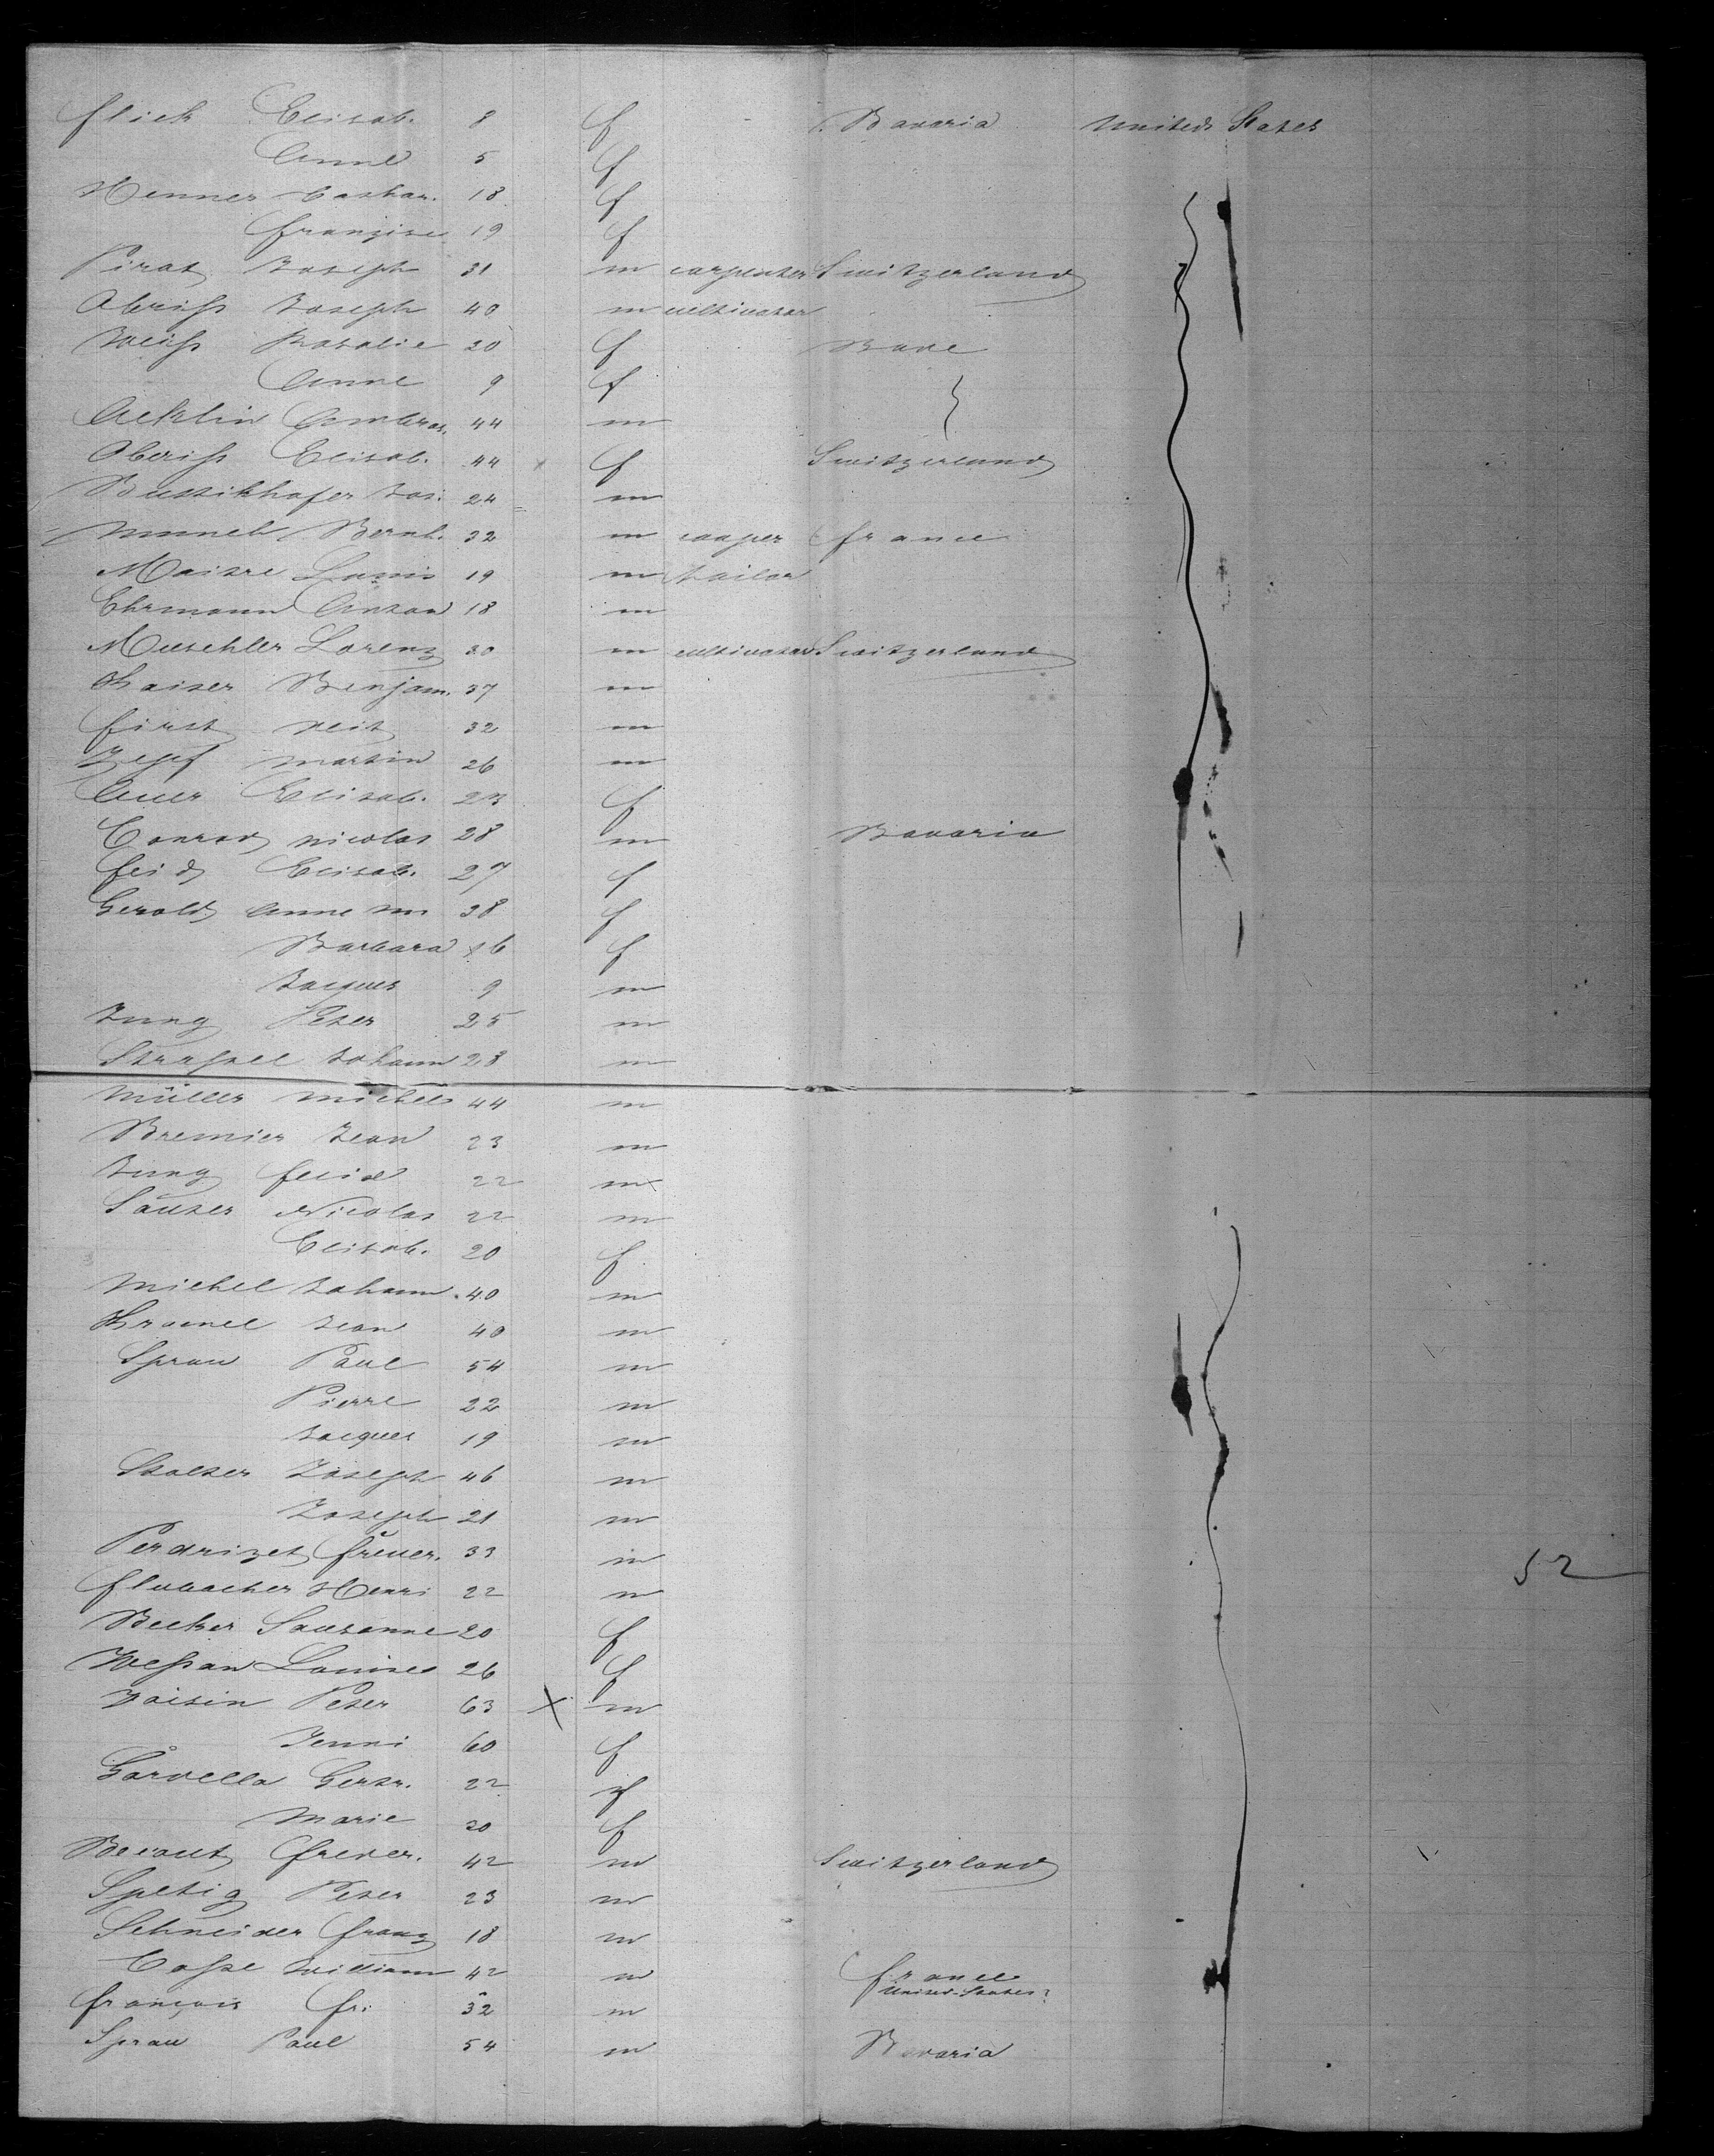 Flick Elisab. 8 f Bavaria United States
Anne 5 f
Henner Cathar. 18 f
Franzise 19 f
Pirat Joseph 31 m carpenter Switzerland
Oberiss Joseph 40 m cultivator
Weiss Rosalie 20 f Bade
Anne 9 f
Acklin Ambros. 44 m
Oberiss Elisab. 44 f Switzerland
Bussikhofer Jos. 24 m
Bernh. 32 m cooper France
Maitre Louis 19 m tailor
Ehrmann Anton 18 m
Mueschler Lorenz 30 m cultivator Switzerland
Kaiser Benjam. 37 m
First Veit 32 m
Zepf Martin 26 m
Auer Elisab. 23 f
Conrad Nicolas 28 m Bavaria
Feid Elisab. 27 f
Gerold Anne M 38 f
Barbara 16 f
Jacques 9 m
Jung Peter 25 m
Johann 28 m
Müller Michel 44 m
Bremier Jean 23 m
Jung 22 m
Sauter Nicolas 22 m
Elisab. 20 f
Michel Johann. 40 m
Jean 40 m
Sprau Paul 54 m
Pierre 22 m
Jacques 19 m
Stalter Joseph 46 m
Joseph 21 m
Perdrizet Freder. 33 m
Flubacher Henri 22 m 52
Becker Sausanne 20 f
Wessan Louise 26 f
Voisin Peter 63 X m
Jenni 60 f
Garvella Gertr. 22 f
Marie 20 f
Freder. 42 m Switzerland
Spetig Peter 23 m
Schneider Franz 18 m
Cosse William 42 m France
United-States?
François Fr. 32 m
Sprau Paul 54 m Bavaria